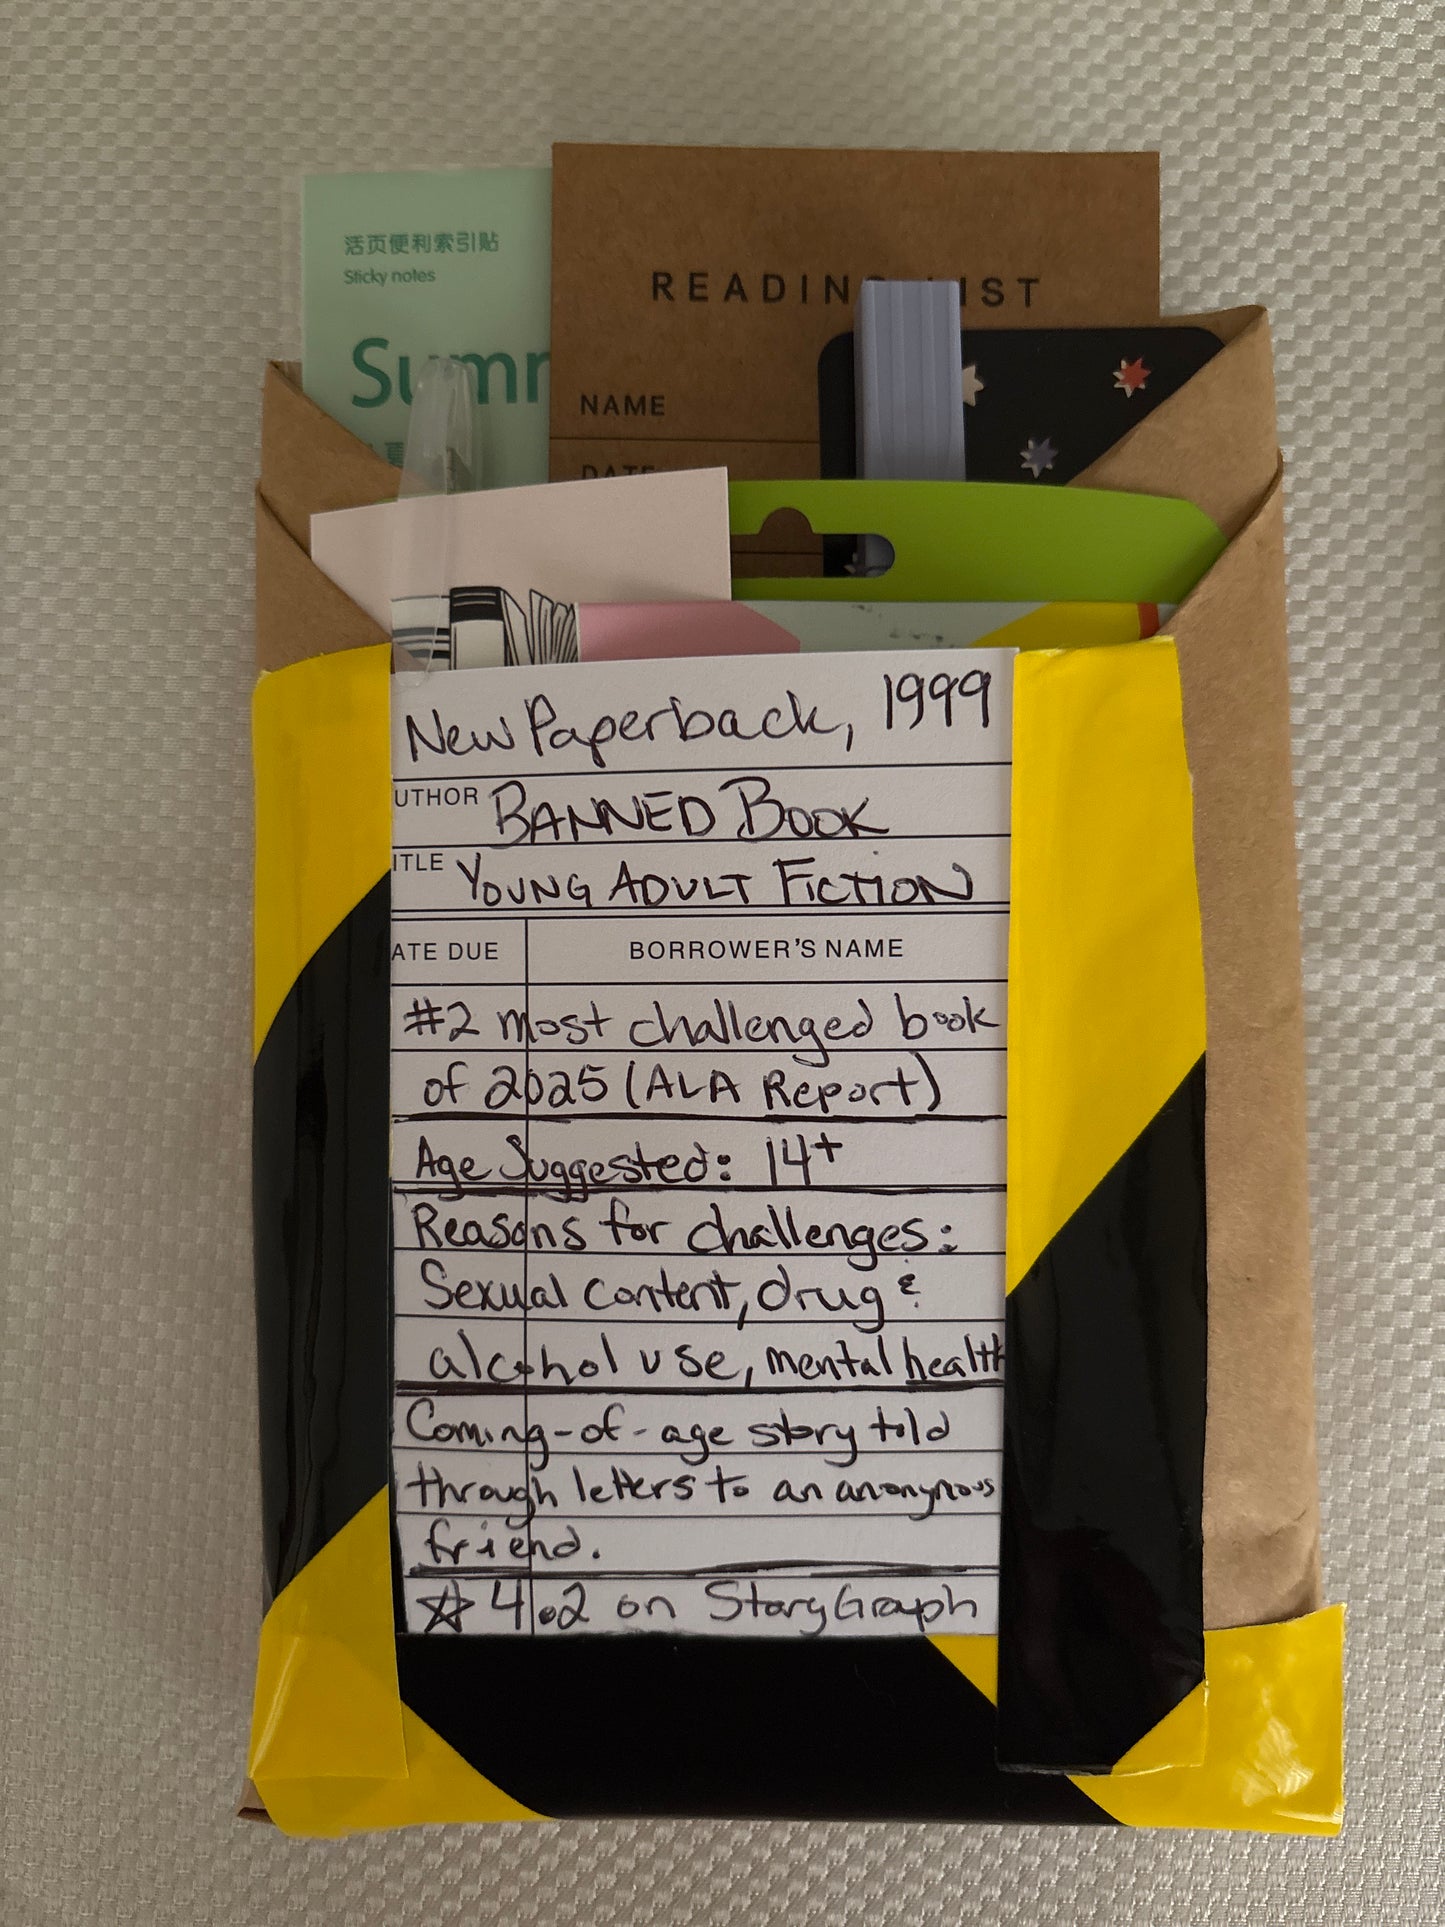 活页便利索引贴
Sticky notes
Summ
READIN IST
NAME
DATE
New Paperback, 1999
UTHOR BANNED BOOK
ITLE YOUNG ADULT FICTION
ATE DUE BORROWER'S NAME
#2 most challenged book
of 2025 (ALA Report)
Age Suggested: 14+
Reasons for challenges:
Sexual content, drug &
alcohol use, mental health
Coming-of-age story told
through letters to an anonymous
friend.
☆ 4.2 on StoryGraph